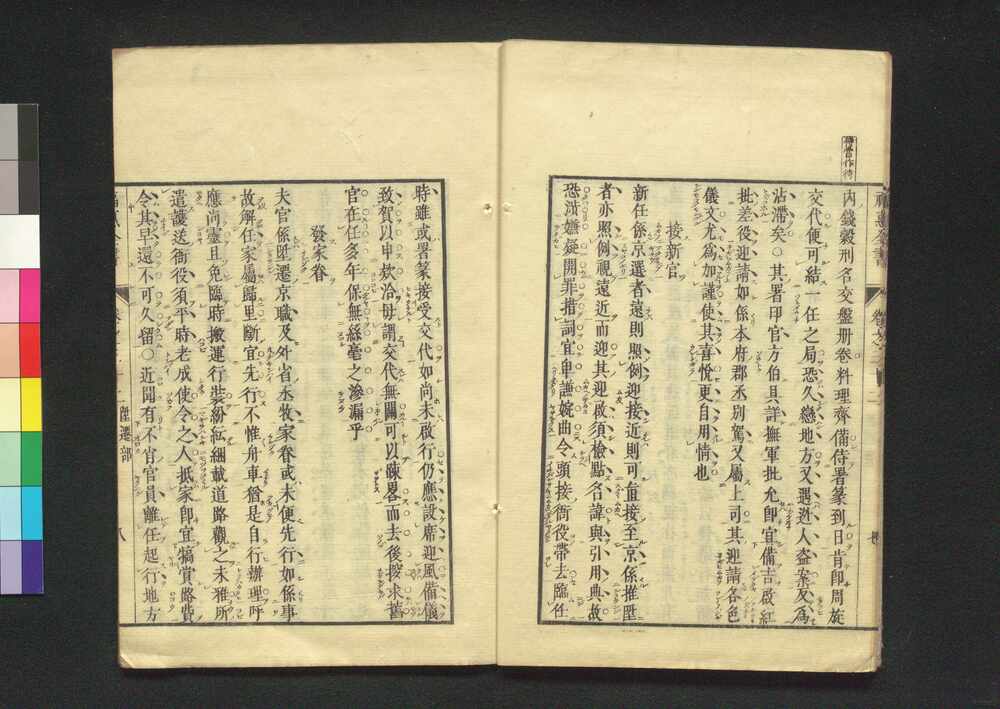 內錢穀刑名交盤册卷料理齊備侍署篆到日肯卽周旋
交代便可結一任之局恐久戀地方又遇迯人盜案反爲
沾滯矣○其署甲官方伯具詳撫軍批允卽宜備吉啟紅
批差役迎請如係本府郡丞別駕又屬上司其迎請各色
儀文尤爲加謹使其喜悅更自用情也
接新官
新任係京選者遠則照例迎接近則可直接至京係推陞
者亦照例視遠近而迎其迎啟須檢點名諱與引用典故
恐渉嫌疑開罪措詞宜申謙婉曲令頭接衙役帶去臨任
時雖或署篆接受交代如尚未啟行仍應設席迎風備儀
致賀以申欵洽毋謂交代無關可以疎畧而去後搜求舊
官在任多年保無絲毫之滲漏乎
發家眷
夫官係陞遷京職及外省丞牧家眷或未便先行如係事
故解任家屬歸里斷宜先行不惟舟車猶是自行辦理呼
應尚靈且免臨時搬運行裝紛紜綑載道路觀之未雅所
遣護送衙役須平時老成使令之人抵家卽宜犒賞路費
令其早還不可久留○近聞有不肖官員離任起行地方
陞遷部
八